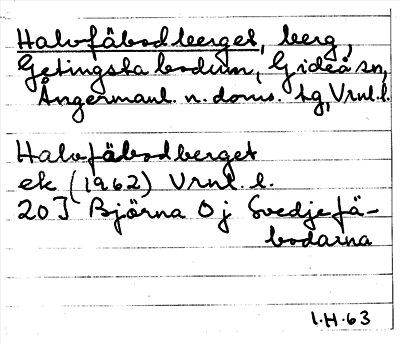 Halvfäbodberget, berg,
Getingsta bodum, Gideå sn,
Ångermanl. n. doms. tg, Vrnl. l.
Halvfäbodberget
ek (1962) Vrnl. l.
20J Björna 0j Svedjefä-
bodarna
I.H.63